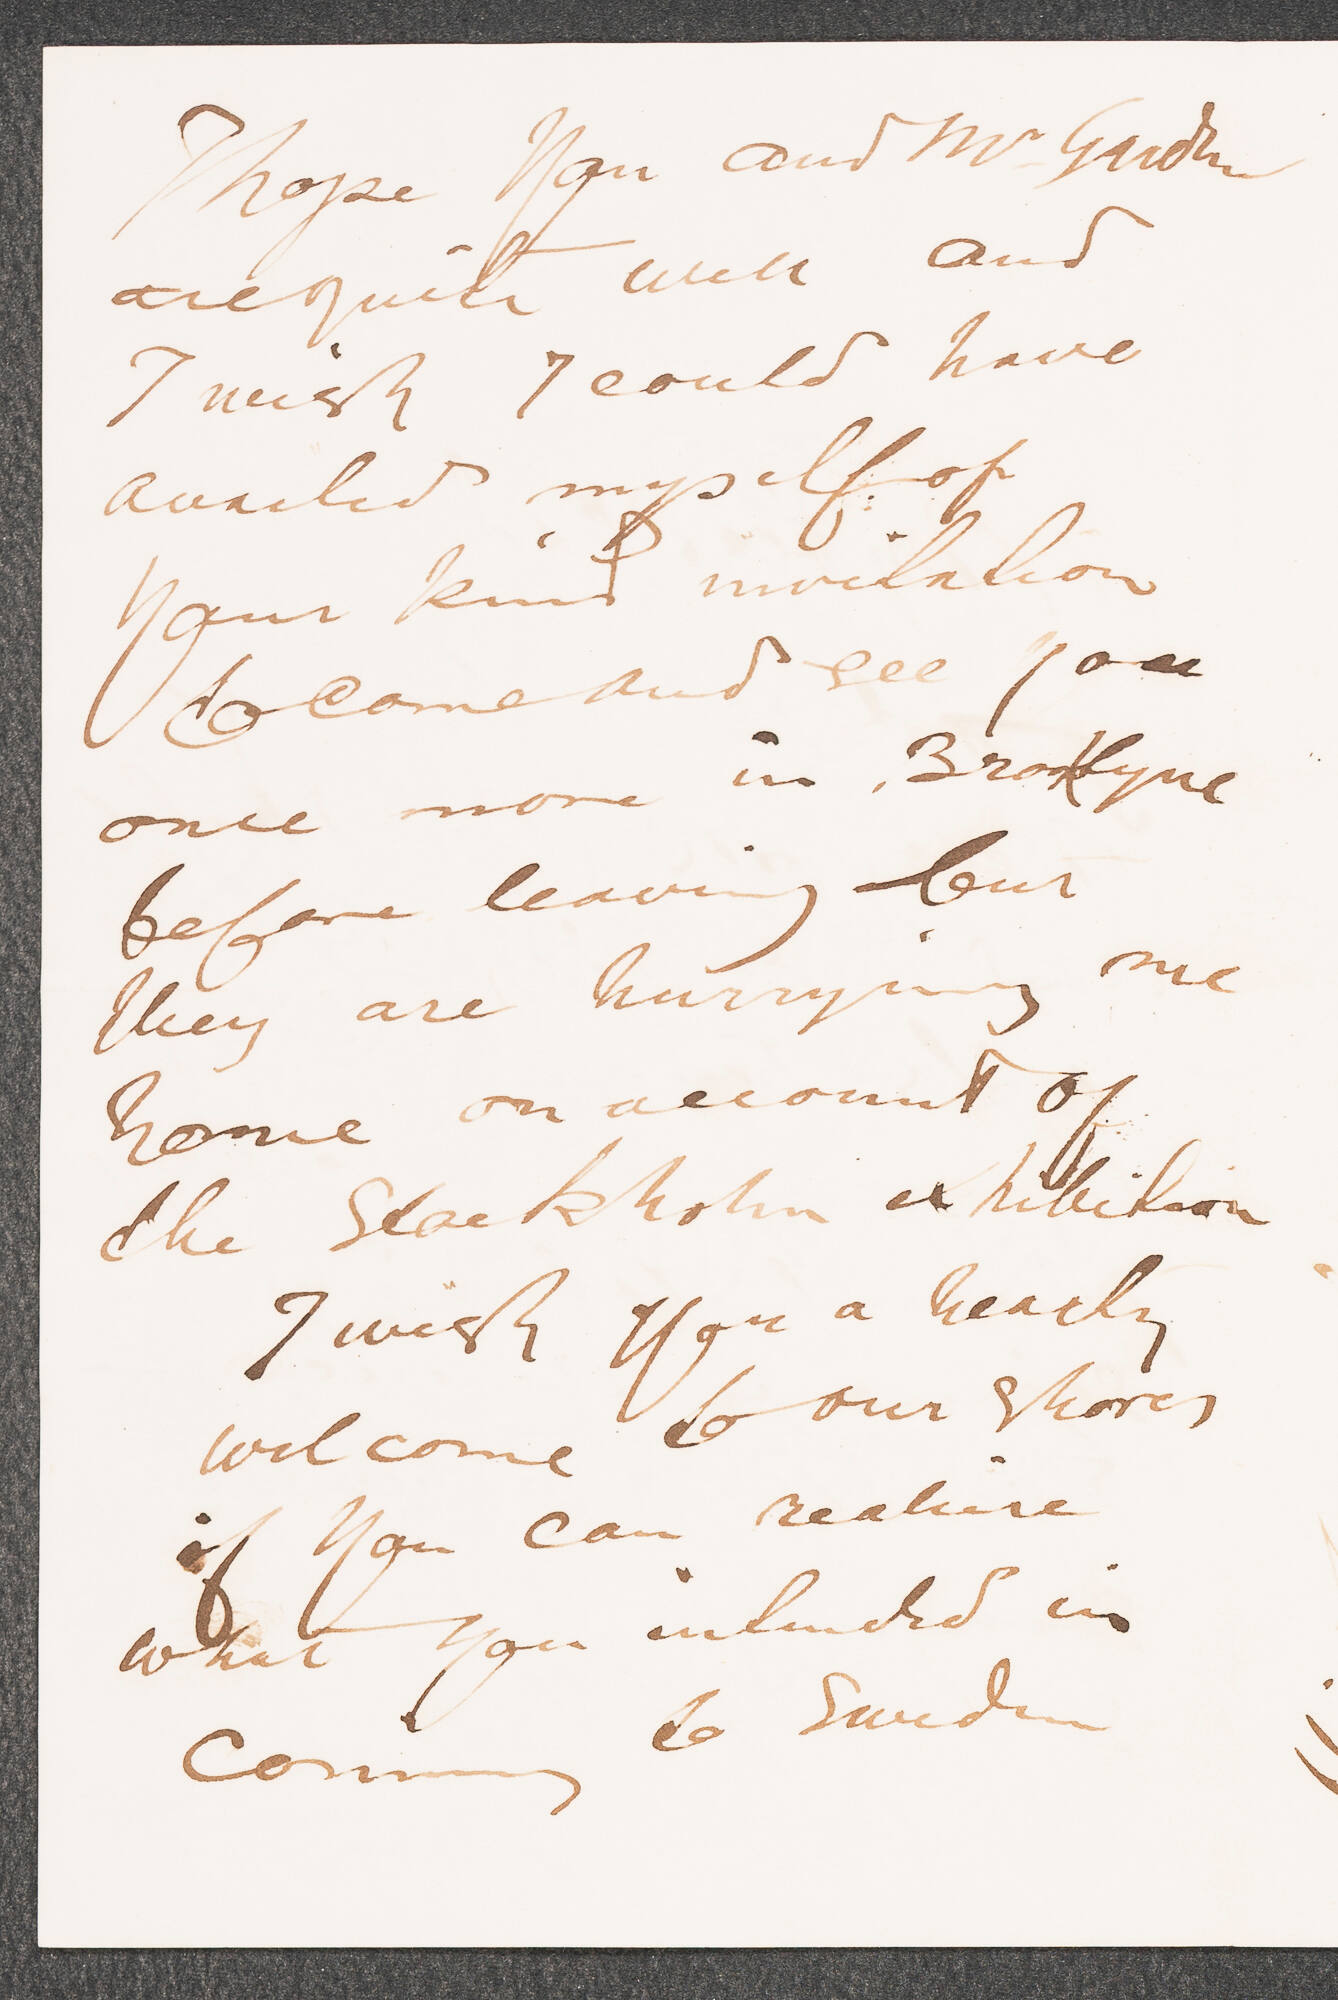 I hope you and Mr Gardner
are quite well and
I wish I could have
availed myself of
your kind invitation
to come and see you
once more in Brooklyne
before leaving but
they are hurrying me
home on account of
the Stockholm exhibition
I wish you a hearty
welcome to our shores
if you can realise
what you intended in
coming to Sweden